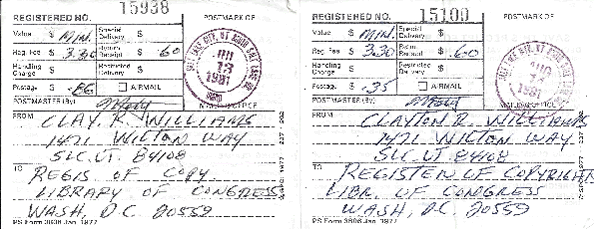 15938
REGISTERED NO.
POSTMARK OF
Value $ MIN.
Special Delivery $
Reg. Fee $ 3.30
Return Receipt $ .60
Handling Charge $
Restricted Delivery $
Postage $
AIRMAIL
13
1981
POSTMASTER (By)
FROM
CLAY R. WILLIAMS
1471 WILTON WAY
SLC. UT. 84108
TO
REGIS. OF COPY
LIBRARY OF CONGRESS
WASH, D.C. 20559
PS Form 3806 Jan. 1977
15100
REGISTERED NO.
POSTMARK OF
Value $ MIN.
Special Delivery $
Reg. Fee $ 3.30
Return Receipt $ .60
Handling Charge $
Restricted Delivery $
Postage $ .35
AIRMAIL
AUG
1981
POSTMASTER (By)
FROM
CLAYTON R. WILLIAMS
1471 WILTON WAY
SLC. UT 84108
TO
REGISTER OF COPYRIGHT
LIBR. OF CONGRESS
WASH, D.C. 20559
PS Form 3806 Jan. 1977